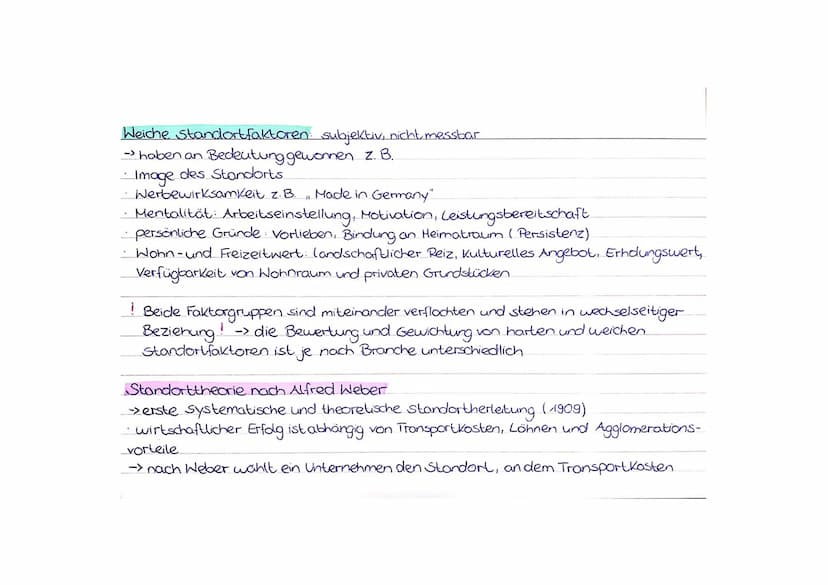 Weiche Standortfaktoren: subjektiv, nicht messbar
→ haben an Bedeutung gewonnen z.B.
· Image des Standorts
· Werbewirksamkeit z.B. „Made in Germany"
· Mentalität: Arbeitseinstellung, Motivation, Leistungsbereitschaft
· persönliche Gründe: Vorlieben, Bindung an Heimatraum (Persistenz)
· Wohn- und Freizeitwert: landschaftlicher Reiz, kulturelles Angebot, Erholungswert,
Verfügbarkeit von Wohnraum und privaten Grundstücken
! Beide Faktorgruppen sind miteinander verflochten und stehen in wechselseitiger
Beziehung! → die Bewertung und Gewichtung von harten und weichen
Standortfaktoren ist je nach Branche unterschiedlich
Standorttheorie nach Alfred Weber
→ erste systematische und theoretische Standortherleitung (1909)
· wirtschaftlicher Erfolg ist abhängig von Transportkosten, Löhnen und Agglomerations-
vorteile
→ nach Weber wählt ein Unternehmen den Standort, an dem Transportkosten